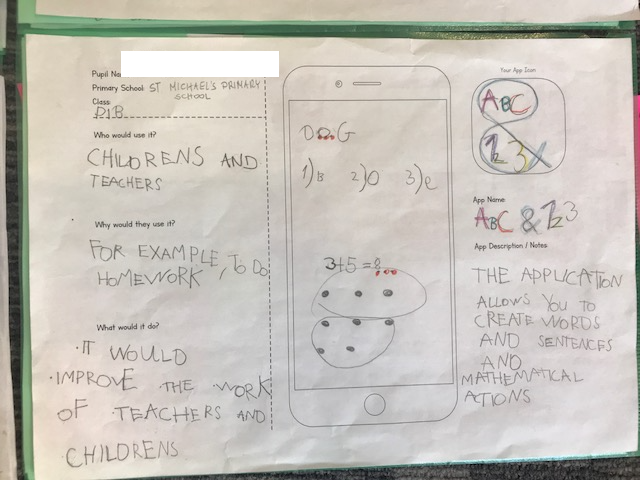 Pupil Na
Primary School: ST MICHAEL'S PRIMARY
SCHOOL
Class:
P1B
Who would use it?
CHILDRENS AND
TEACHERS
Why would they use it?
FOR EXAMPLE, TO DO
HOMEWORK
What would it do?
·IT WOULD
·IMPROVE THE WORK
OF TEACHERS AND
CHILDRENS
1)B 2)O 3)e
3+5=8
Your App Icon
ABC
App Name:
ABC & 123
App Description / Notes:
THE APPLICATION
ALLOWS YOU TO
CREATE WORDS
AND SENTENCES
AND
MATHEMATICAL
ACTIONS